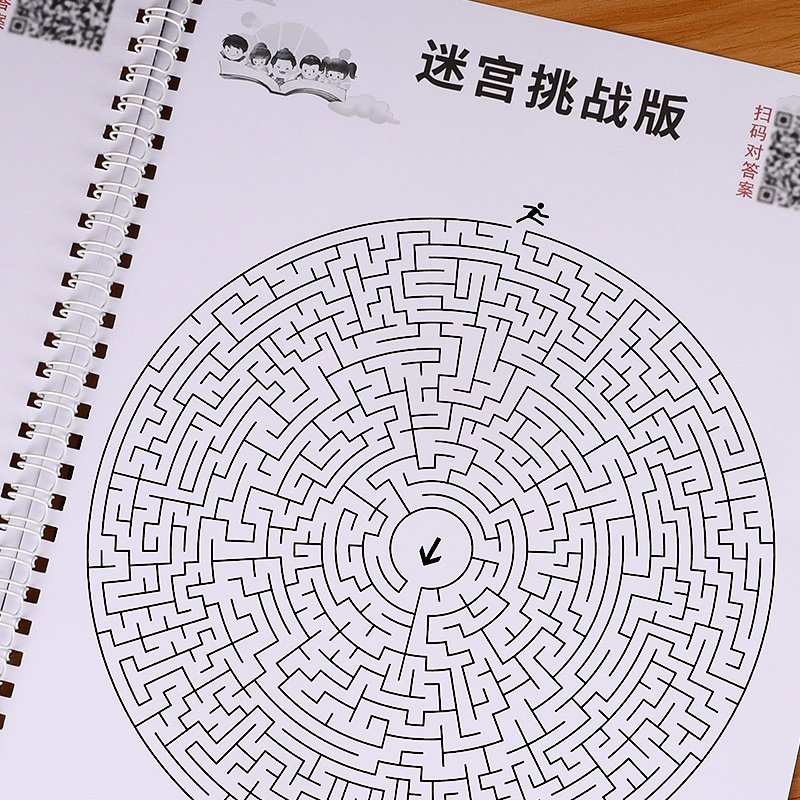 迷宫挑战版
扫码对答案